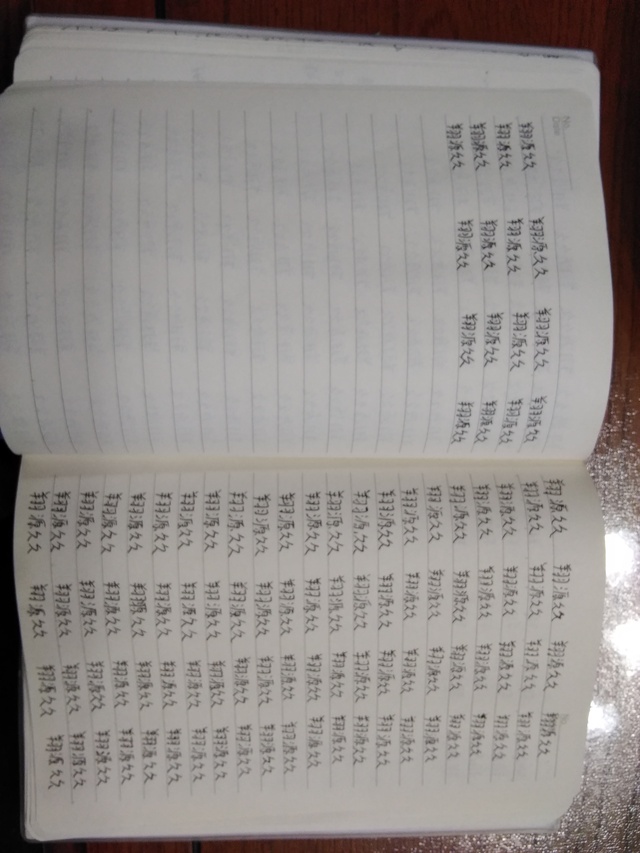 翔源久久 翔源久久 翔源久久 翔源久久
翔源久久 翔源久久 翔源久久 翔源久久
翔源久久 翔源久久 翔源久久 翔源久久
翔源久久 翔源久久 翔源久久 翔源久久
翔源久久 翔源久久 翔源久久 翔源久久
翔源久久 翔源久久 翔源久久 翔源久久
翔源久久 翔源久久 翔源久久 翔源久久
翔源久久 翔源久久 翔源久久 翔源久久
翔源久久 翔源久久 翔源久久 翔源久久
翔源久久 翔源久久 翔源久久 翔源久久
翔源久久 翔源久久 翔源久久 翔源久久
翔源久久 翔源久久 翔源久久 翔源久久
翔源久久 翔源久久 翔源久久 翔源久久
翔源久久 翔源久久 翔源久久 翔源久久
翔源久久 翔源久久 翔源久久 翔源久久
翔源久久 翔源久久 翔源久久 翔源久久
翔源久久 翔源久久 翔源久久 翔源久久
翔源久久 翔源久久 翔源久久 翔源久久
翔源久久 翔源久久 翔源久久 翔源久久
翔源久久 翔源久久 翔源久久 翔源久久
翔源久久 翔源久久 翔源久久 翔源久久
翔源久久 翔源久久 翔源久久 翔源久久
翔源久久 翔源久久 翔源久久 翔源久久
翔源久久 翔源久久 翔源久久 翔源久久
翔源久久 翔源久久 翔源久久 翔源久久
翔源久久 翔源久久 翔源久久 翔源久久